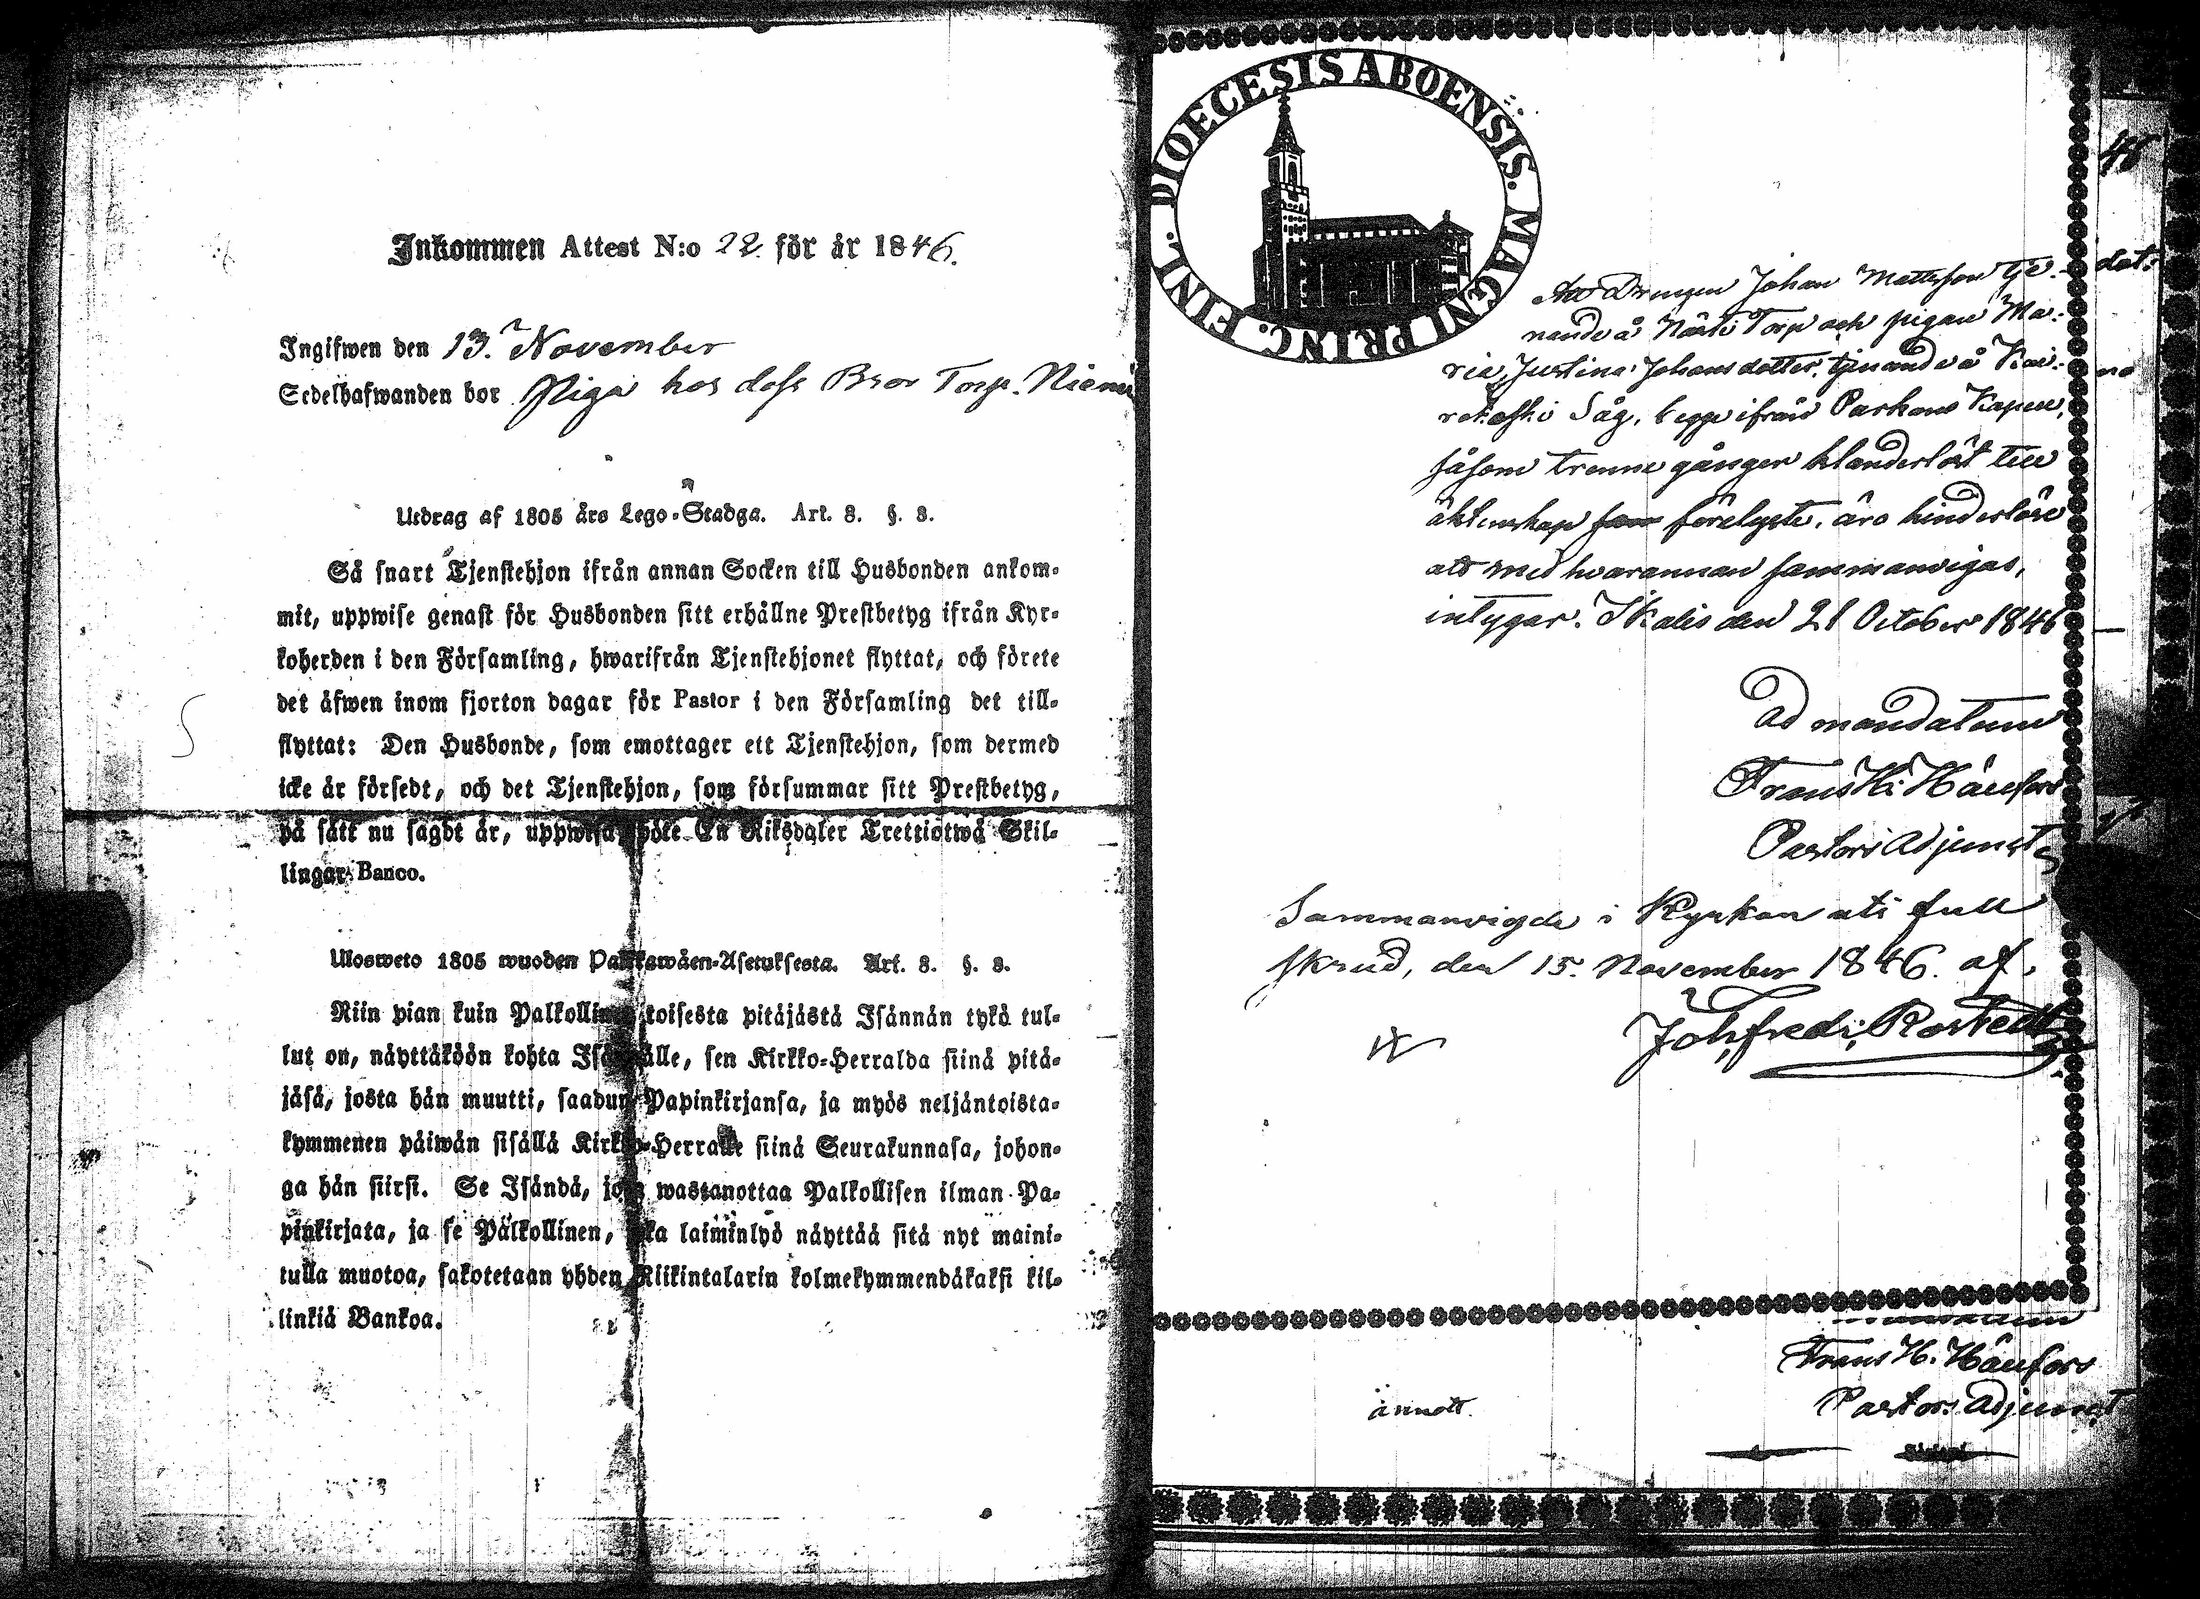 Inkommen Attest N:o 22. för år 1846.
Ingifwen den 13. November
Sedelhafwanden bor Piga hos dess Bror Torp. Niemi
Utdrag af 1805 års Lego-Stadga. Art. 8. §. 8.
Så snart Tjenstehjon ifrån annan Socken till Husbonden ankom-
mit, uppwise genast för Husbonden sitt erhållne Prestbetyg ifrån Kyr-
koherden i den Församling, hwarifrån Tjenstehjonet flyttat, och förete
det äfwen inom fjorton dagar för Pastor i den Församling det till-
flyttat: Den Husbonde, som emottager ett Tjenstehjon, som dermed
icke är försedt, och det Tjenstehjon, som försummar sitt Prestbetyg,
på sätt nu sagdt är, uppwisa, böte En Riksdaler Trettiotwå Skil-
lingar Banco.
Ulosweto 1805 wuoden Palkkawäen-Asetuksesta. Art. 8. §. 8.
Niin pian kuin Palkollinen toisesta pitäjästä Isännän tykö tul-
lut on, näyttäköön kohta Isännälle, sen Kirkko-Herralda siinä pitä-
jäsä, josta hän muutti, saadun Papinkirjansa, ja myös neljäntoista-
kymmenen päiwän sisällä Kirkko-Herralle siinä Seurakunnasa, johon-
ga hän siirsi. Se Isändä, joka wastanottaa Palkollisen ilman Pa-
pinkirjata, ja se Palkollinen, joka laiminlyö näyttää sitä nyt maini-
tulla muotoa, sakotetaan yhden Riikintalarin kolmekymmendäkaksi kil-
linkiä Bankoa.
DIOECESIS ABOENSIS. MAGNI PRINC. FINL.
48
Att Drängen Johan Mattsson Tje-
nande å Torp och pigan Ma-
ria Justina Johansdotter, tjenande å
Såg, begge ifrån Capell,
såsom trenne gånger klanderlöst till
äktenskap förelyste, äro hinderlöse
att med hvarannan sammanvigas,
intygar. Skalis den 21 October 1846
ad mandatum
Frans H. Hänfors
Pastors Adjunct
Sammanvigde i Kyrkan uti full
skrud, den 15. November 1846. af,
Joh: Fredr: Rostedt
Frans H. Hänfors
Pastors Adjunct